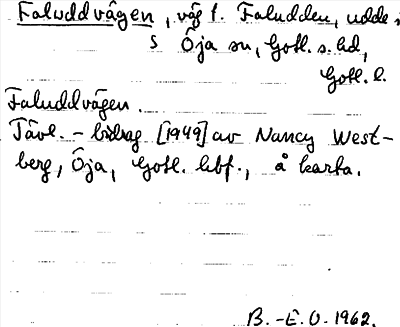 Faluddvägen, väg t. Faludden, udde i
S Öja sn, Gotl. s. hd,
Gotl. l.
Faluddvägen.
Tävl.-bidrag [1949] av Nancy West-
berg, Öja, Gotl. hbf., å karta.
B.-E.O. 1962.